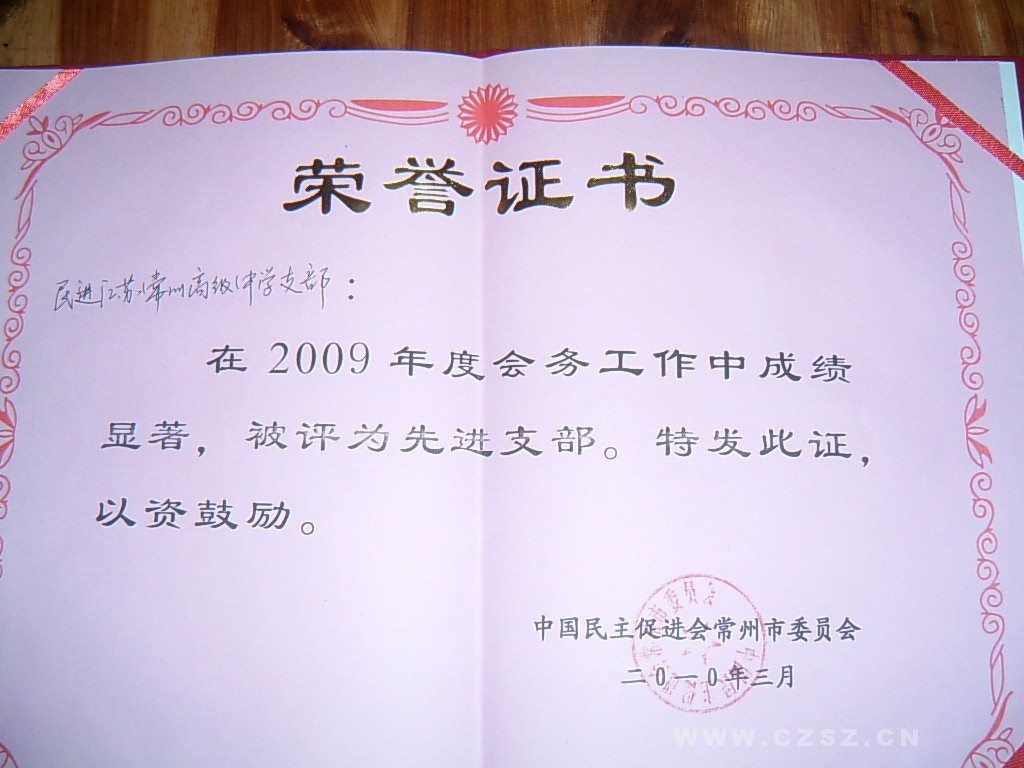 荣誉证书
民进江苏省常州高级中学支部：
在 2009 年度会务工作中成绩
显著，被评为先进支部。特发此证，
以资鼓励。
中国民主促进会常州市委员会
二〇一〇年三月
WWW.CZSZ.CN